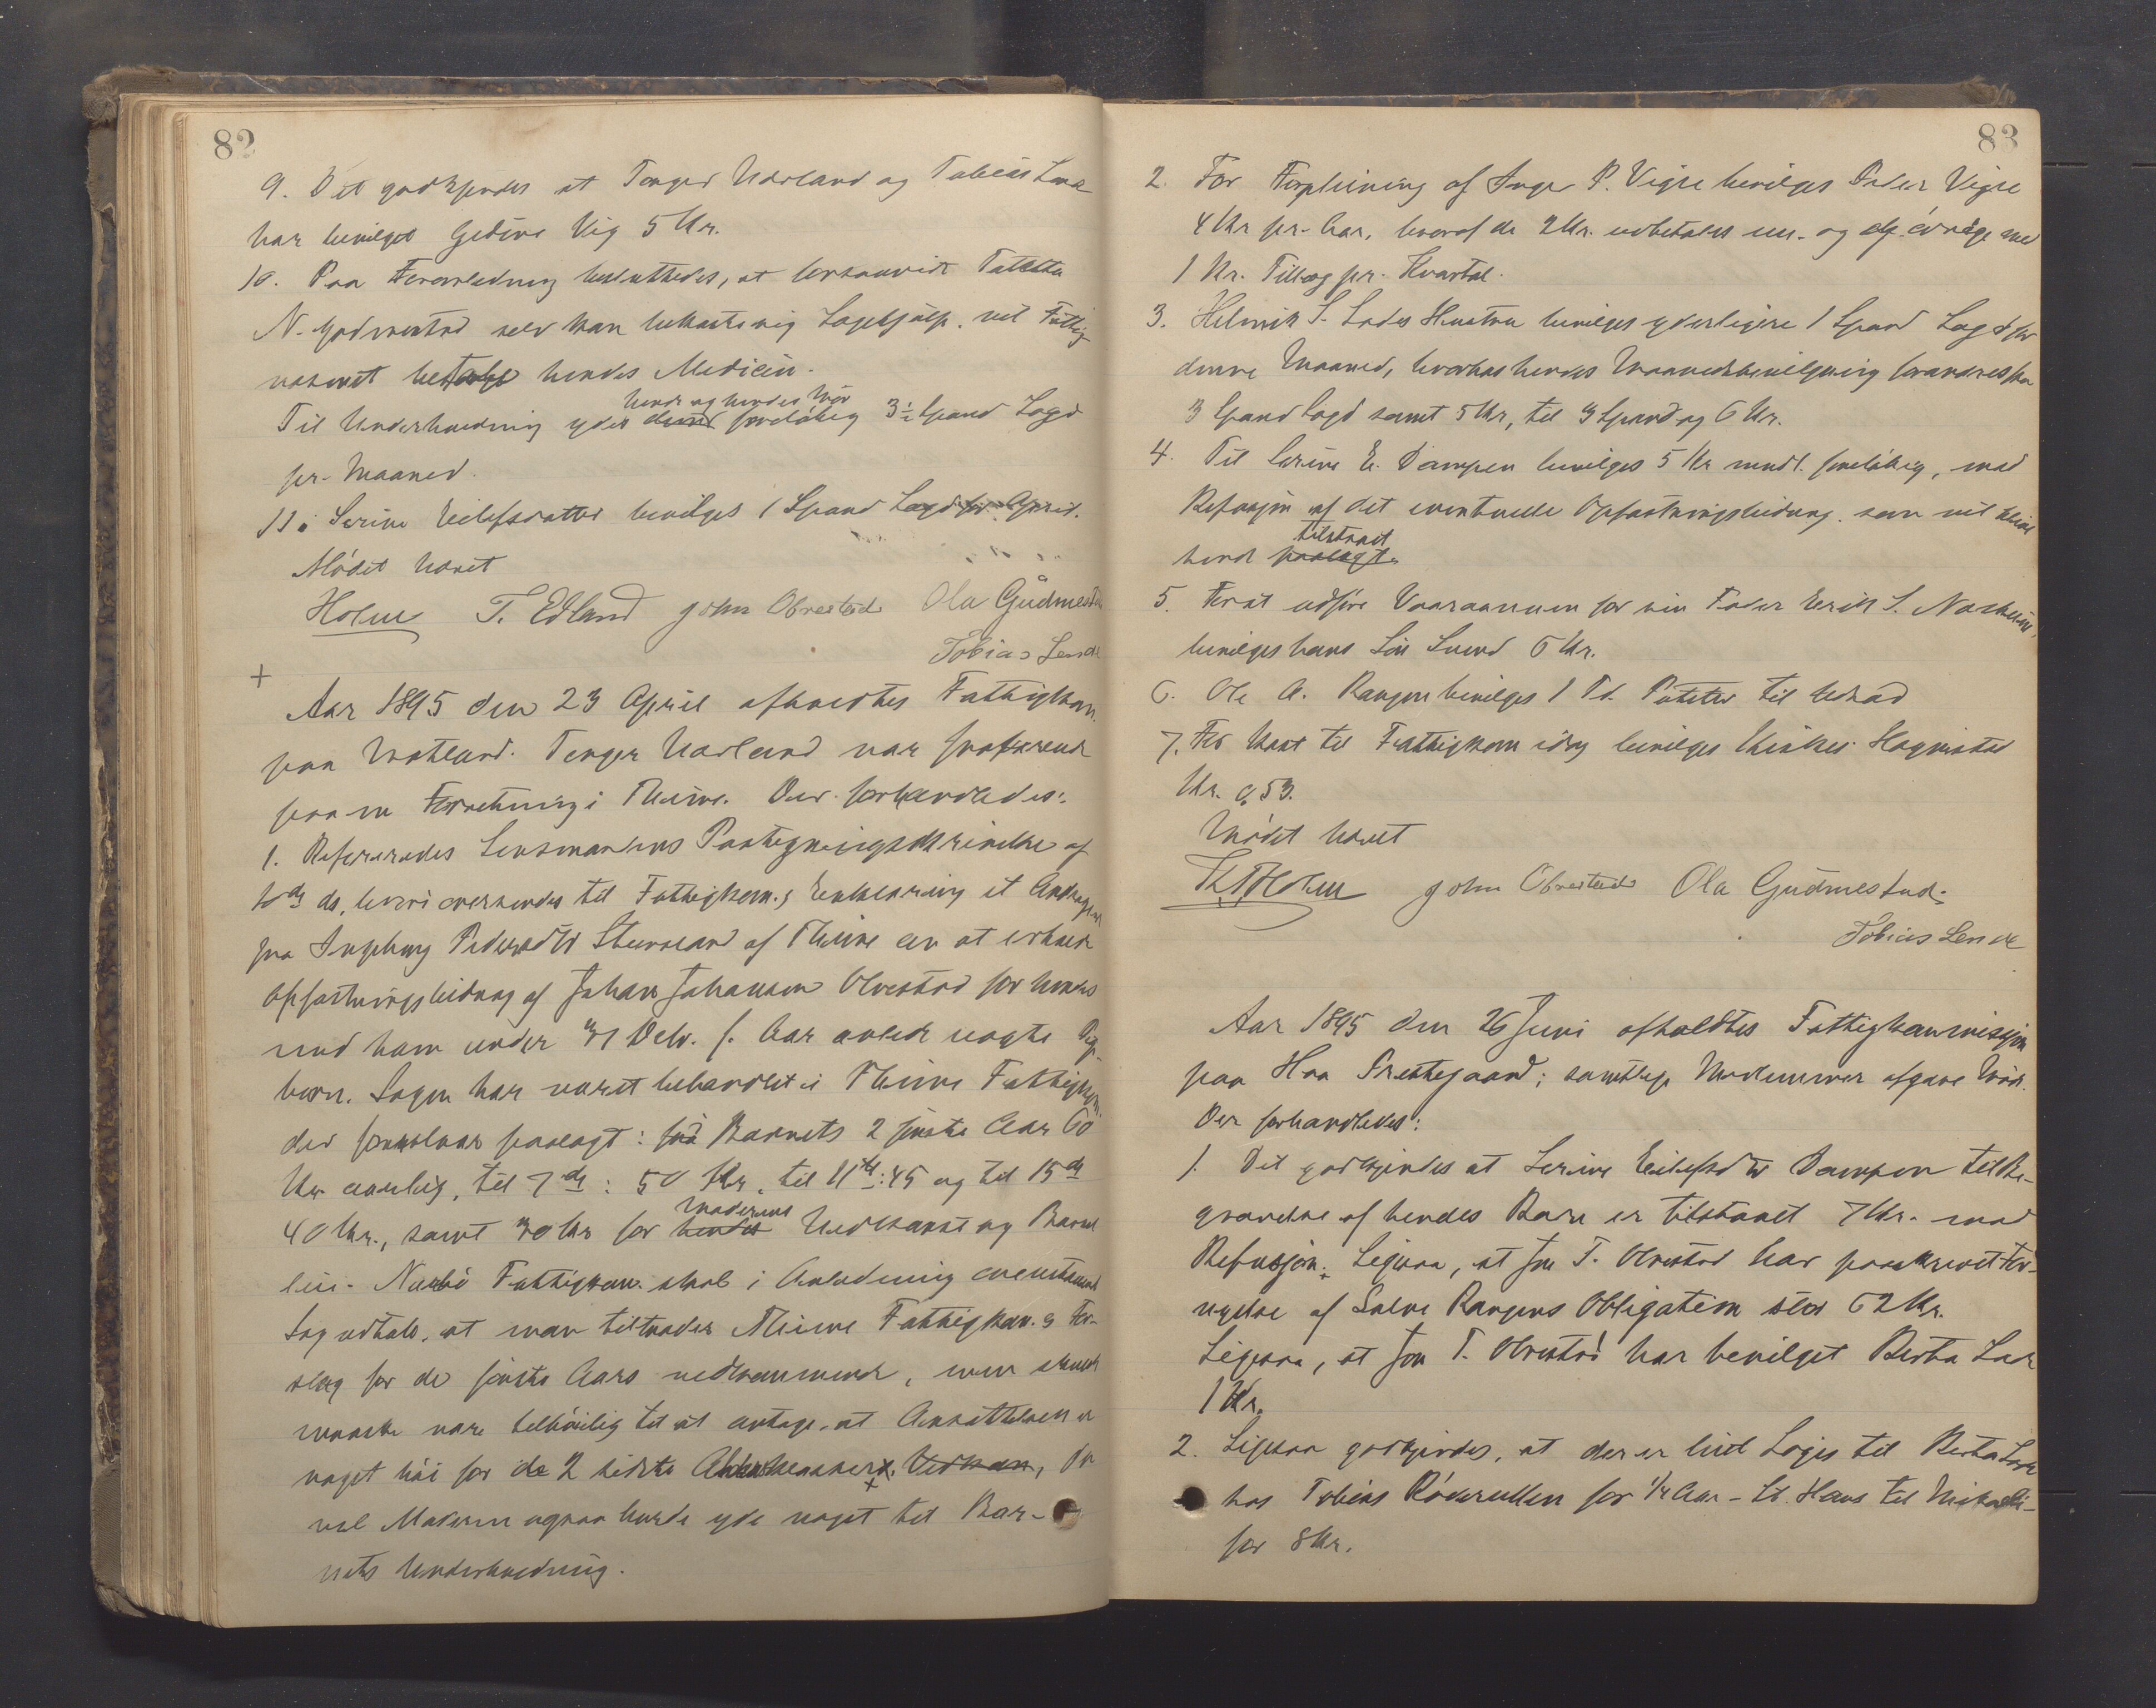 82
9. Det godkjendes at Torger Udland og Tobias Lende
har bevilget Gedine Vig 5 Kr.
10. Paa Foranledning besluttedes, at forsaavidt
N. Gudmestad selv kan bekoste sig Lægehjælp, vil Fattig-
væsenet betale hendes Medicin.
hende og hendes Mor
Til Underholdning ydes foreløbig 3½ Spand Sagd
pr. Maaned.
11. Serine Eilefsdatter bevilges 1 Spand Sagd for April.
Mødet hævet
Holm T. Edland John Obrestad Ola Gudmestad
Tobias Lende
+
Aar 1895 den 23 April afholdtes Fattigkom.
paa Motland. Torger Udland var fraværende
paa en Forretning i Thime. Der forhandledes:
1. Refereredes Lensmandens Paategningsskrivelse af
10de ds, hvori oversendes til Fattigkom.s Erklæring et Andragende
fra Ingeborg Pedersdtr Steinsland af Thime om at erholde
Opfostringsbidrag af Johan Johansen Obrestad for hendes
med ham under 31 Decbr. f. Aar avlede uægte Pige-
barn. Sagen har været behandlet i Thime Fattigkom.
der foreslaar paalagt: for Barnets 2 første Aar 60
Kr aarlig, til 7de: 50 Kr, til 11te: 45 og til 15de
Moderens
40 Kr., samt 30 Kr for hendes Nedkomst og Barsel
leie. Nærbø Fattigkom. skal i Anledning ovenstaaende
Sag udtale, at man tiltræder Thime Fattigkom.s For-
slag for de første Aars vedkommende, men skulde
maaske være tilbøielig til at antage, at Ansættelsen er
noget høi for de 2 sidste Aldersklasser, da
vel Moderen ogsaa burde yde noget til Bar-
nets Underholdning.
83
2. For Forpleining af Inger P. Vigre bevilges Peder Vigre
4 Kr pr. Aar, hvoraf de 2 Kr. udbetales nu og de øvrige med
1 Kr. Tillæg pr. Kvartal.
3. Helmik S. Lodes Hustru bevilges yderligere 1 Spand Sagd for
denne Maaned, hvorhos hendes Maanedsbevilgning forandres fra
3 Spand Sagd samt 5 Kr, til 3 Spand og 6 Kr.
4. Til Serine E. Dampen bevilges 5 Kr mndl. foreløbig, mod
Refusjon af det eventuelle Opfostringsbidrag, som vil blive
tilstaaet
hende paalagt.
5. For at udføre Vaaraannen for sin Fader Erik S. Nærheim,
bevilges hans Søn Svend 6 Kr.
6. Ole A. Rangen bevilges 1 Td. Poteter til Udsæd
7. For Kost til Fattigkom idag bevilges Hognestad
Kr. 9,53.
Mødet hævet
Th. Holm John Obrestad Ola Gudmestad.
Tobias Lende
Aar 1895 den 26 Juni afholdtes Fattigkommisjon
paa Haa Prestegaard; samtlige Medlemmer afgave Møde.
Der forhandledes:
1. Det godkjendes at Serine Eilefsdtr Dampen til Be-
gravelse af hendes Barn er tilstaaet 7 Kr. mod
Refusjon. Ligesaa, at Jon T. Obrestad har paaskrevet For-
nyelse af Salve Rangens Obligation stor 62 Kr.
Ligesaa, at Jon T. Obrestad har bevilget Berta Lode
1 Kr.
2. Ligesaa godkjendes, at der er leiet Logis til Berta Lode
hos Tobias for ½ Aar – St. Hans til Mikaeli –
for 8 Kr.